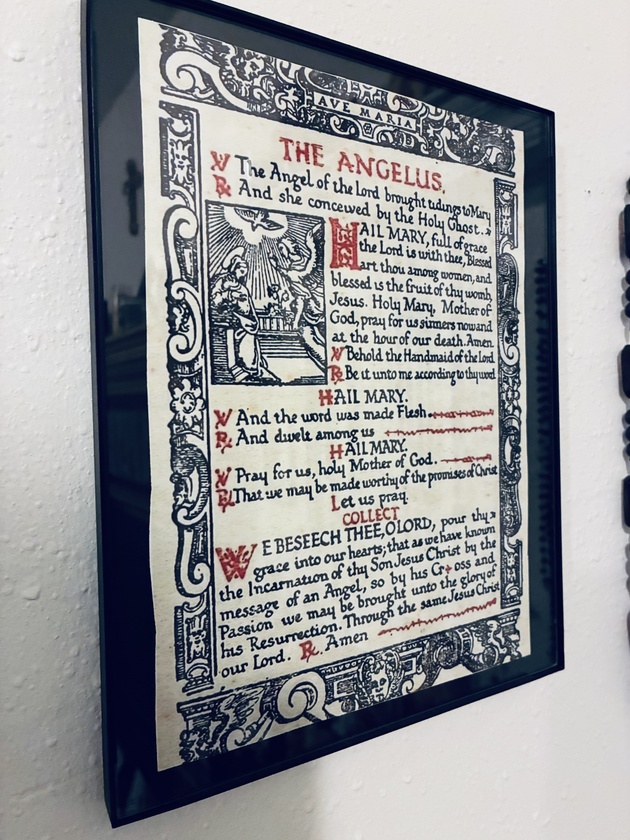 AVE MARIA
THE ANGELUS.
℣ The Angel of the Lord brought tidings to Mary
℟ And she conceived by the Holy Ghost.
HAIL MARY, full of grace
the Lord is with thee, Blessed
art thou among women, and
blessed is the fruit of thy womb,
Jesus. Holy Mary, Mother of
God, pray for us sinners now and
at the hour of our death. Amen.
℣ Behold the Handmaid of the Lord.
℟ Be it unto me according to thy word
HAIL MARY.
℣ And the word was made Flesh
℟ And dwelt among us
HAIL MARY.
℣ Pray for us, holy Mother of God.
℟ That we may be made worthy of the promises of Christ
Let us pray.
COLLECT
WE BESEECH THEE, O LORD, pour thy
grace into our hearts; that as we have known
the Incarnation of thy Son Jesus Christ by the
message of an Angel, so by his Cr+oss and
Passion we may be brought unto the glory of
his Resurrection. Through the same Jesus Christ
our Lord. ℟ Amen